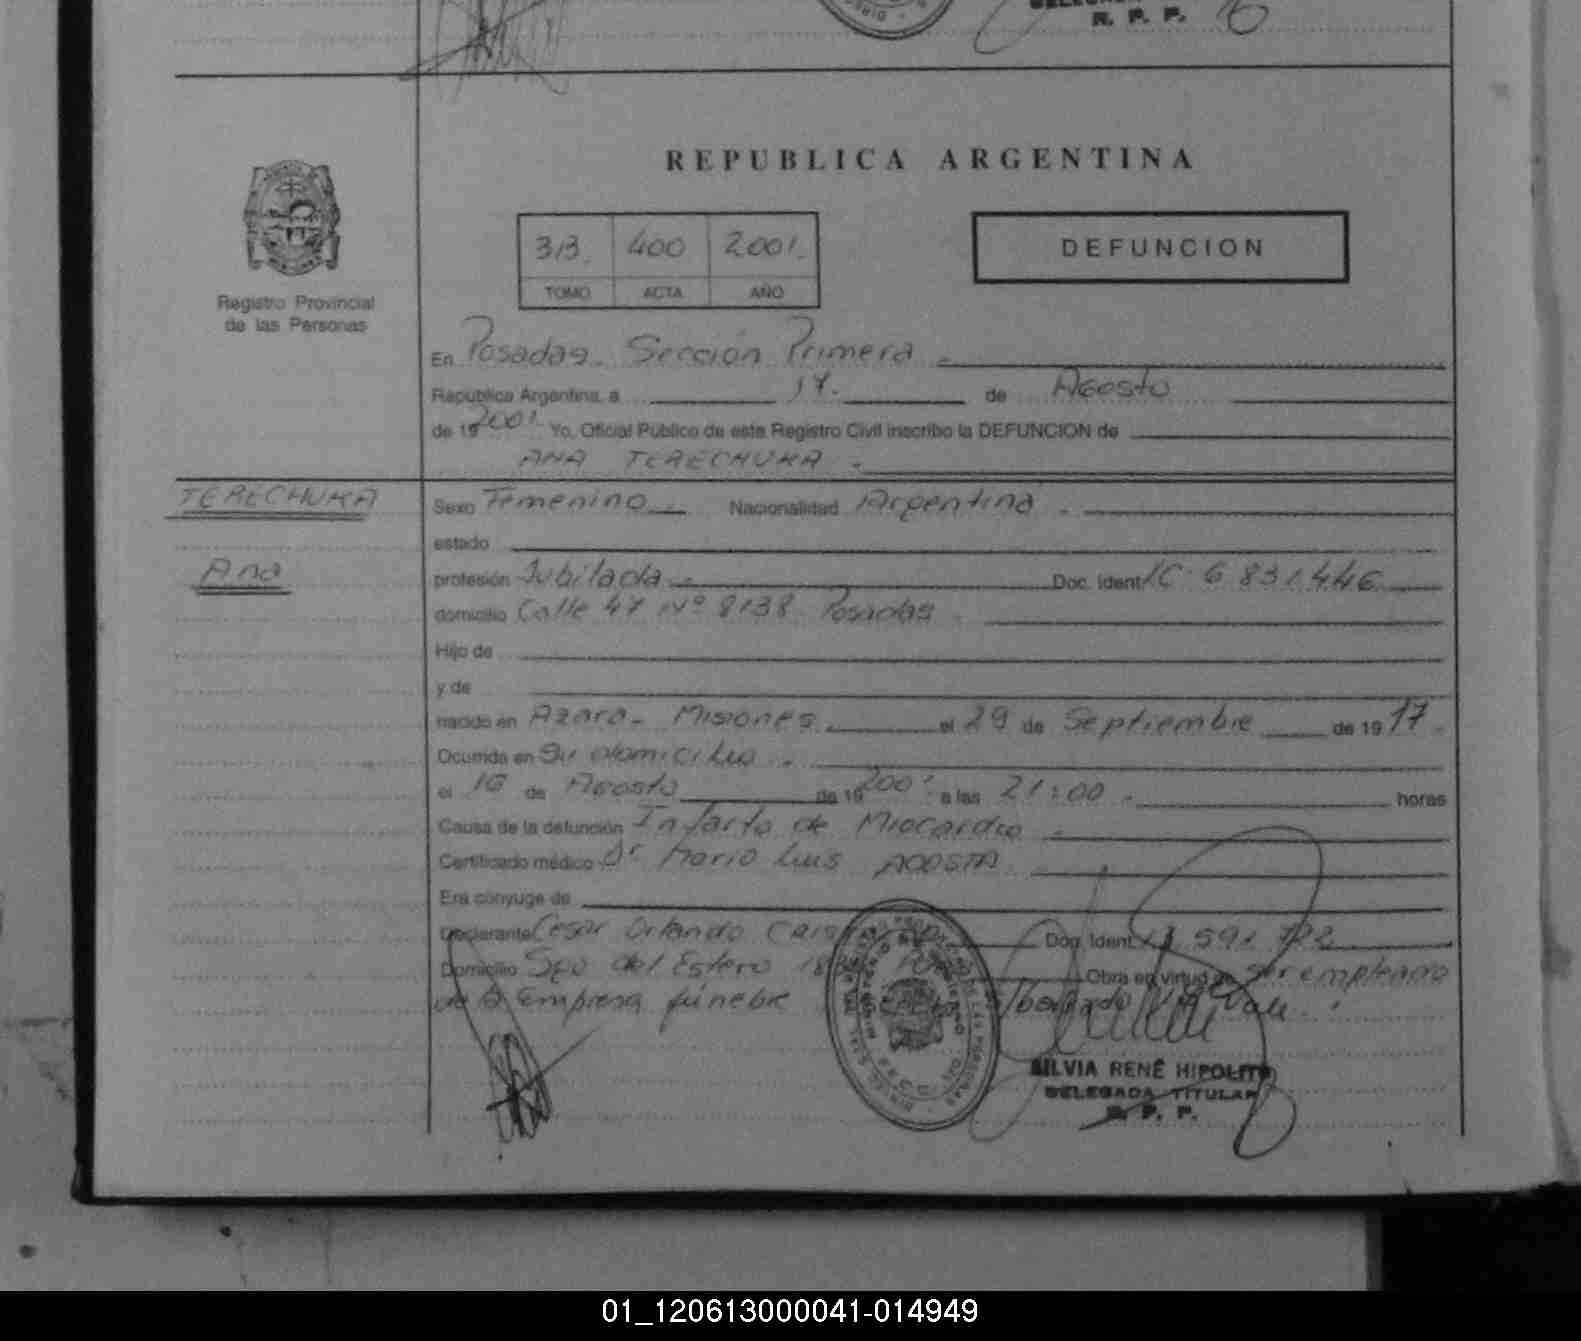 R. P. P.
REPUBLICA ARGENTINA
3/3. 400 2001.
TOMO ACTA AÑO
DEFUNCION
Registro Provincial
de las Personas
En Posadas. Sección Primera
República Argentina, a 17. de Agosto
de 19 2001 Yo, Oficial Público de este Registro Civil inscribo la DEFUNCION de
ANA TERECHUKA
TERECHUKA
Ana
Sexo Femenino Nacionalidad Argentina
estado
profesión Jubilada Doc. Ident. IC 6.831.446
domicilio Calle 47 Nº 8138 Posadas
Hijo de
y de
nacido en Azara - Misiones el 29 de Septiembre de 19 17.
Ocurrida en Su domicilio
el 16 de Agosto de 19 2001 a las 21:00 horas
Causa de la defunción Infarto de Miocardio
Certificado médico Dr Mario Luis ACOSTA
Era cónyuge de
Declarante Cesar Orlando Doc. Ident. 591
Domicilio Sgo del Estero Obra en virtud de ser empleado
de la Empresa fúnebre
SILVIA RENÉ HIPOLITO
DELEGADA TITULAR
R. P. P.
01_120613000041-014949